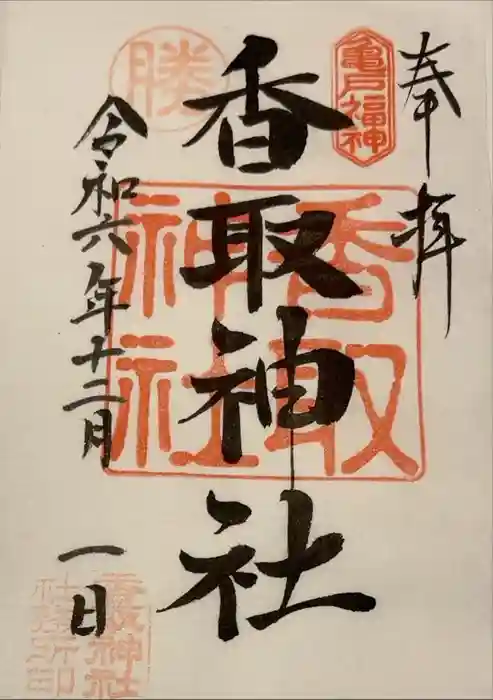 奉拝
亀戸福神
香取神社
香取
神社
勝
令和六年十二月
一日
香取神社
社務所印